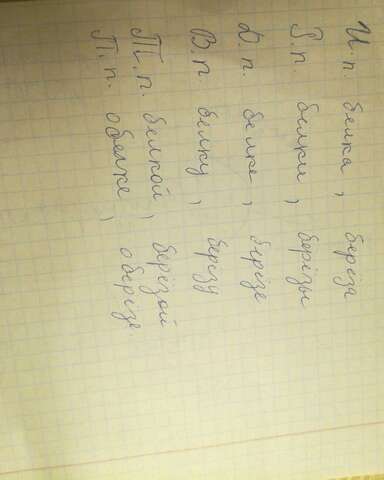 И.п. белка, берёза
Р.п. белки, берёзы
Д.п. белке, берёзе
В.п. белку, берёзу
Т.п. белкой, берёзой
П.п. о белке, о берёзе.